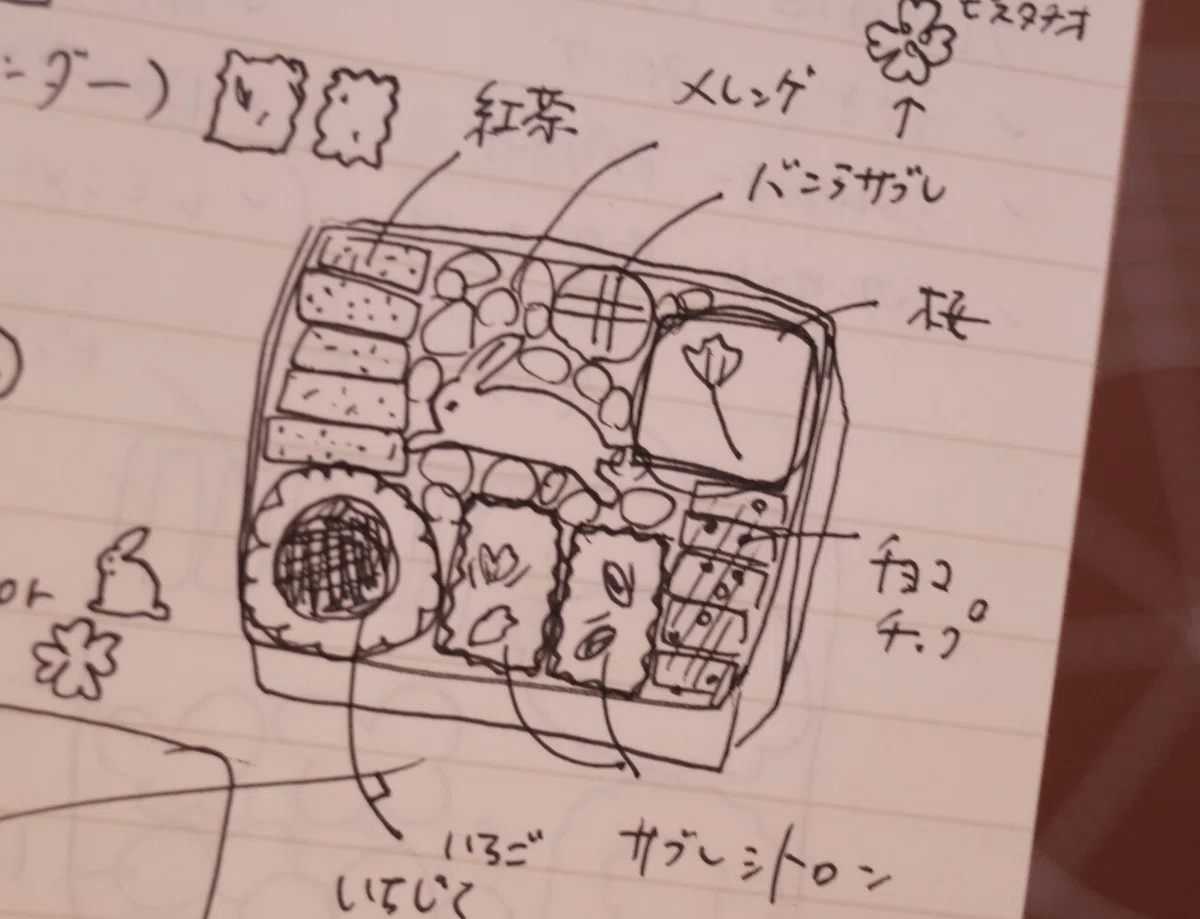 ピスタチオ
ンダー)
紅茶
メレンゲ
バニラサブレ
桜
チョコ
チップ
or
いちご
サブレシトロン
いちじく